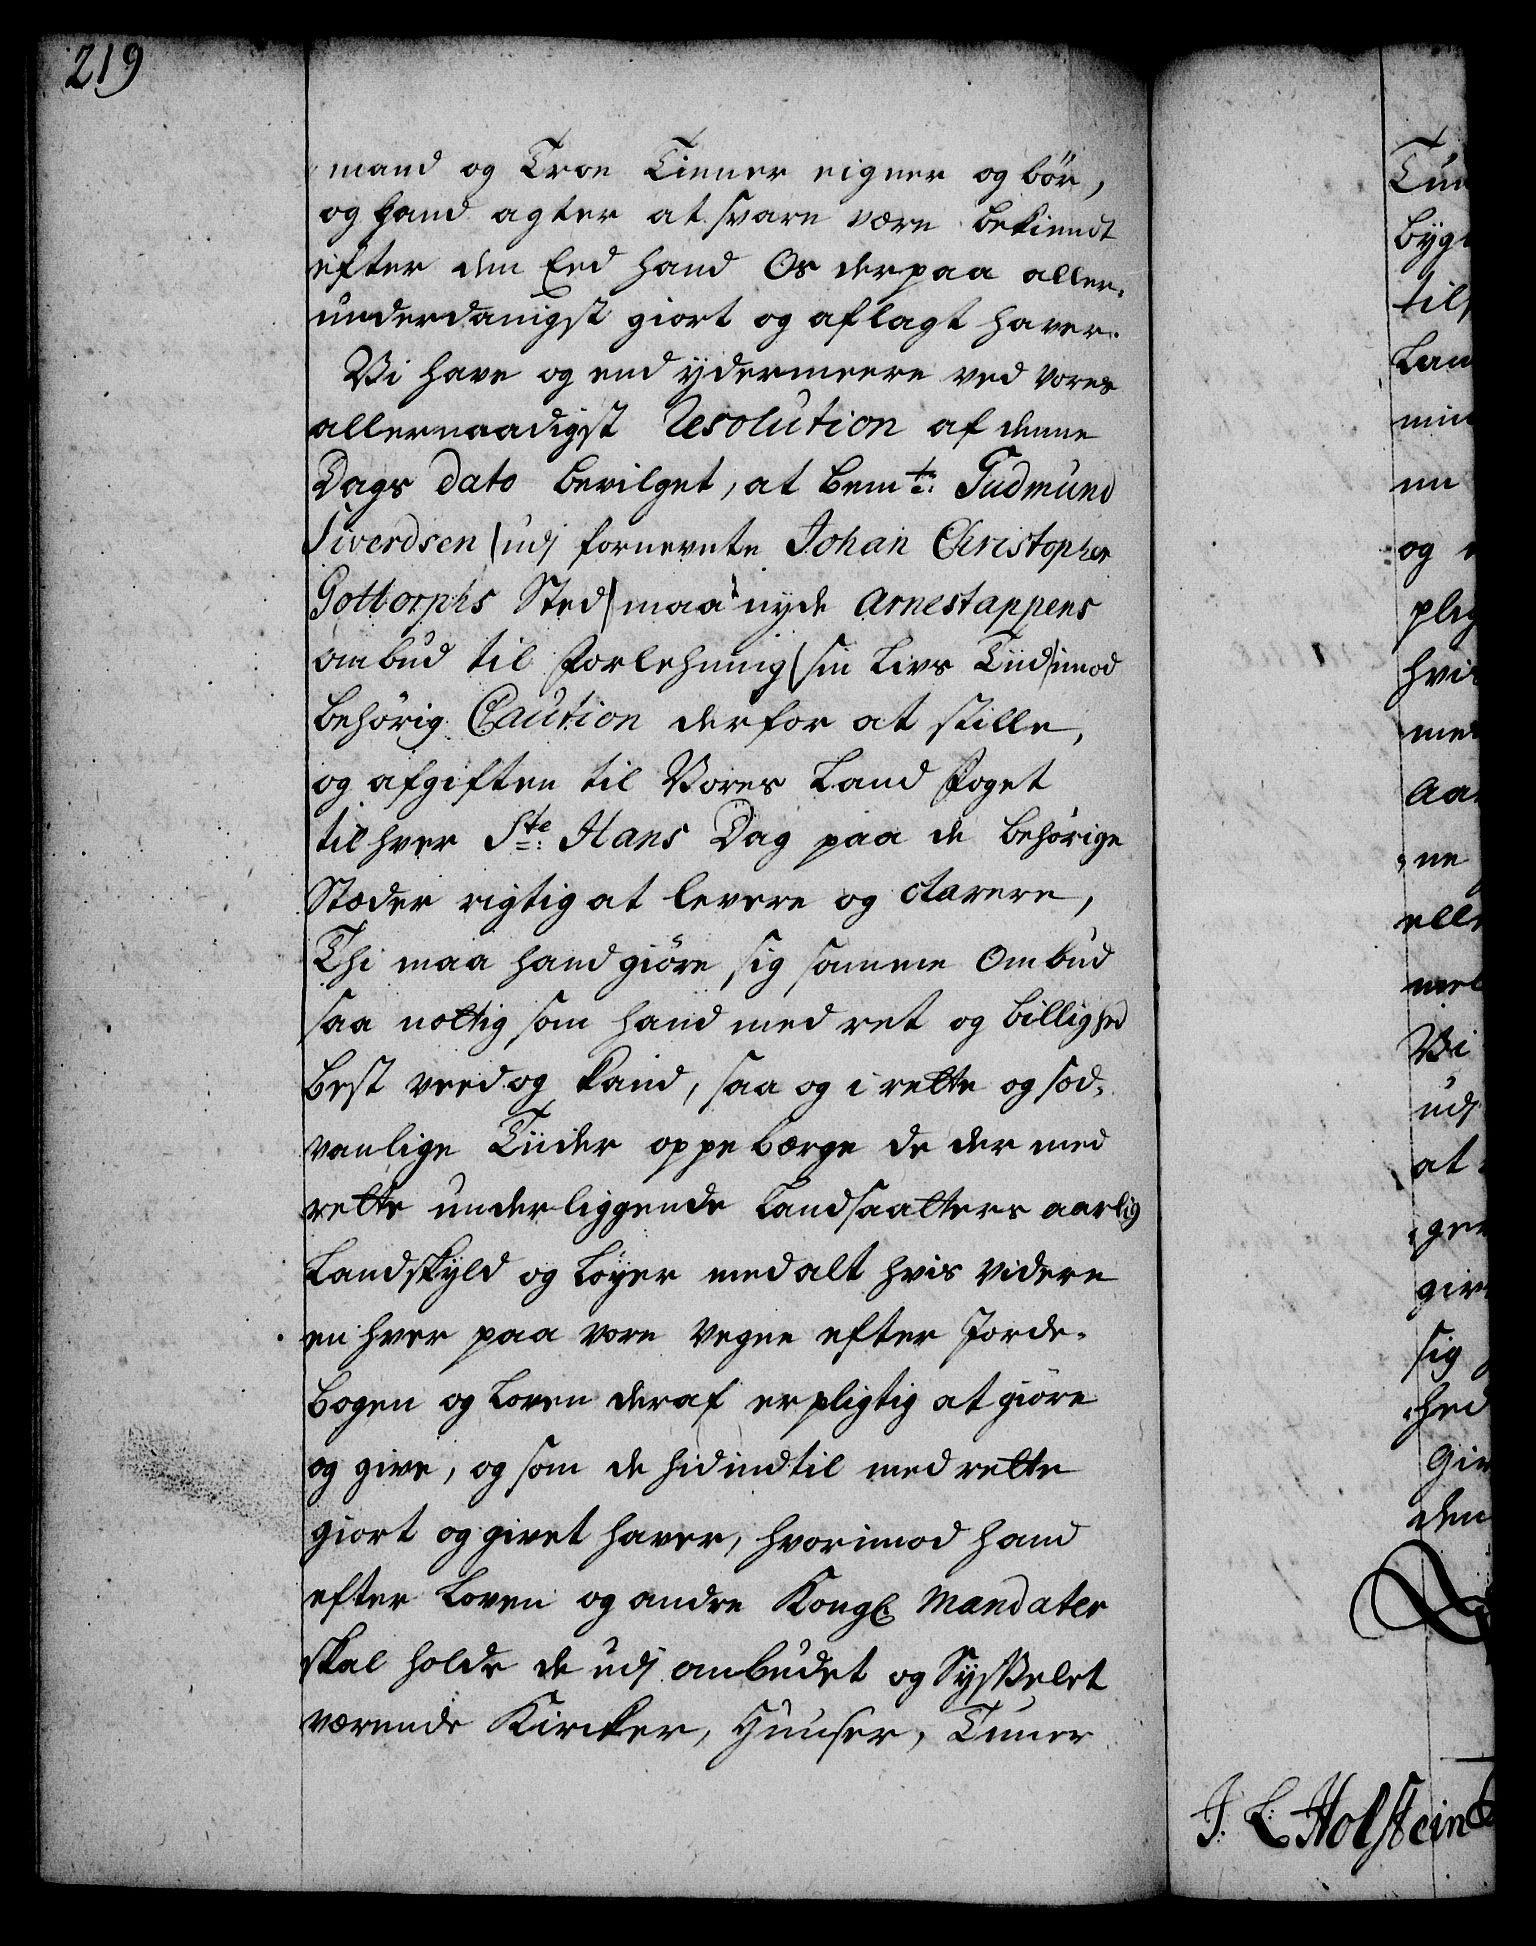 219
mand og Troe Tienner eigner og bör,
og hand agter at svare være bekiendt
efter den Eed hand Os derpaa aller-
underdanigst giort og aflagt haver.
Vi have og end ydermeere ved Vores
allernaadigst Resolution af denne
Dags dato bevilget, at bemte: Gudmund
Siverdsen /udj fornevnte Johan Christopher
Gottorphs Sted/ maa nyde Arnestappens
ombud til Forlehning /sin Livs Tiid/ imod
behörig Caution derfor at stille,
og afgiften til Vores Land Foget
til hver Ste: Hans Dag paa de behörige
Stæder rigtig at levere og clarere,
Thi maa hand giöre sig samme Ombud
saa nöttig som hand med ret og billighed
best veed og kand, saa og i rette og sæd-
vanlige Tiider oppebærge de der med
rette underliggende Landsaatters aarlig
Landskyld og Löyer med alt hvis videre
en hver paa vore vegne efter Jorde-
bogen og Loven deraf er pligtig at giöre
og give, og som de hidindtil med rette
giort og givet haver, hvorimod hand
efter Loven og andre Kongl. Mandater
skal holde de udj ombudet og Sysselet
værende Kircker, Huuser, Tuner
Tun
byg
til
Lan
min
nu
og
plig
hvi
med
Aa
-ne
elle
mel
Vi
udj
at
-gen
giv
sig
-hed
Giv
den
J. L. Holstein